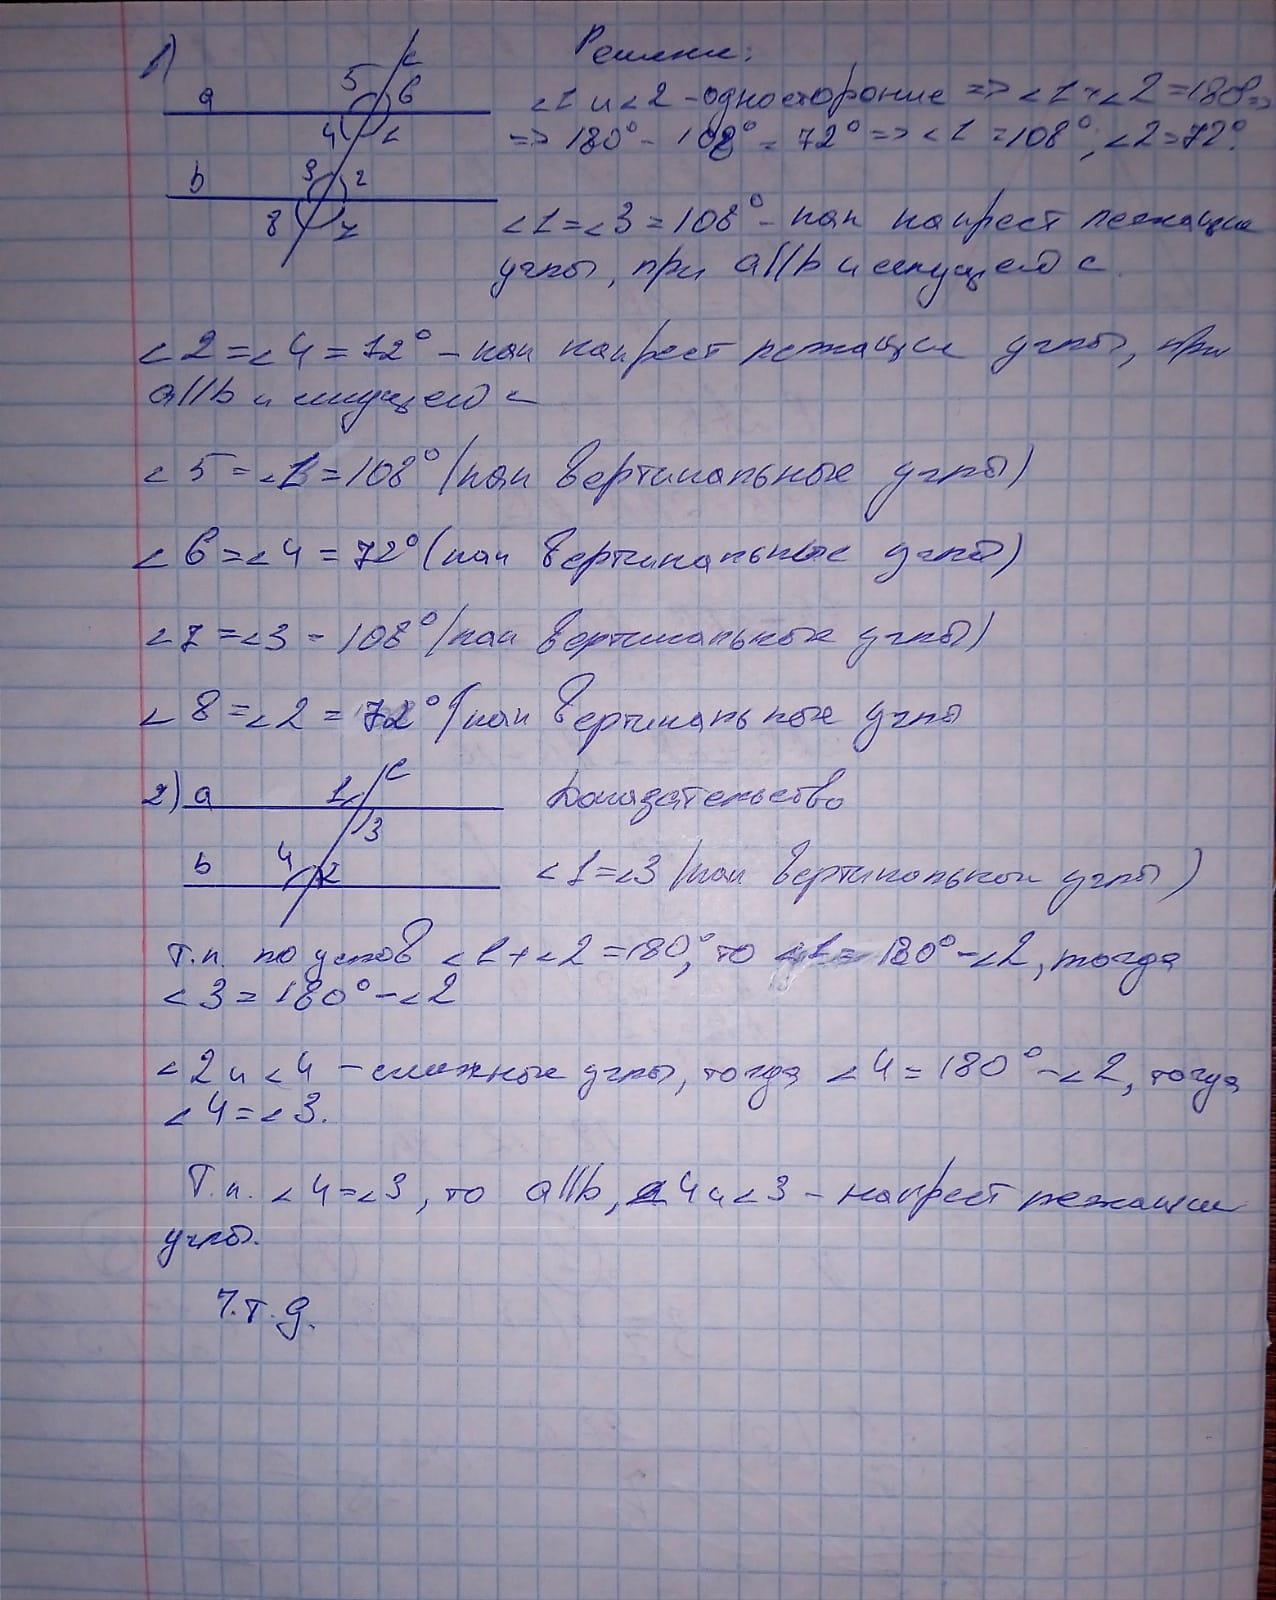 1)
Решение:
a 5 c 6
4 1
b 3 2
8 7
<1 и <2 - одностороние => <1+<2 =180° =>
=> 180° - 108° = 72° => <1 =108°; <2=72°.
<1=<3=108° - как накрест лежащие
углы, при a||b и секущей c.
<2=<4=72° - как накрест лежащие углы, при
a||b и секущей c
<5=<1=108° (как вертикальные углы)
<6=<4=72° (как вертикальные углы)
<7=<3=108° (как вертикальные углы)
<8=<2=72° (как вертикальные углы
2) a 1 c
3
b 4 2
Доказательство
<1=<3 (как вертикальные углы)
Т.к. по услов <1+<2=180°, то <1=180°-<2, тогда
<3=180°-<2
<2 и <4 - смежные углы, тогда <4=180°-<2, тогда
<4=<3.
Т.к. <4=<3, то a||b, <4 и <3 - накрест лежащие
углы.
Ч.т.д.